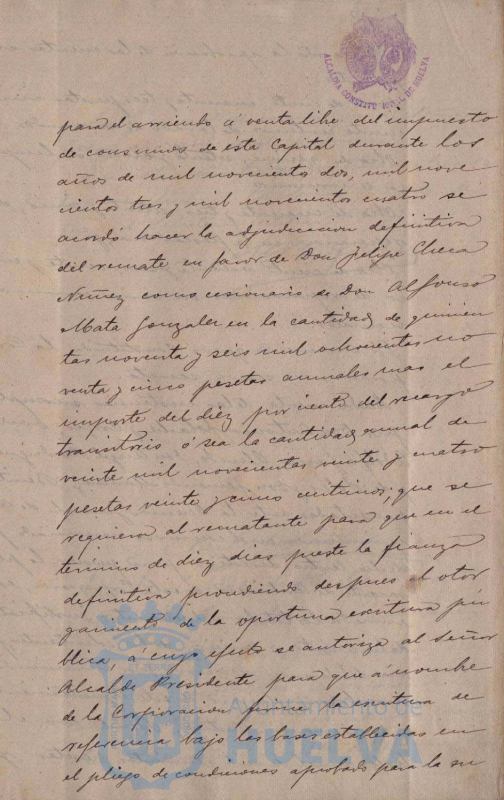 ALCALDIA CONSTITUCIONAL DE HUELVA
para el arriendo á venta libe del impuesto
de consumos de ésta Capital durante los
años de mil novecientos dos, mil nove
cientos tres y mil novecientos cuatro se
acordó hacer la adjudicacion definitiva
del remate en favor de Don Felipe Checa
Nuñez como cesionario de Don Alfonso
Mata Gonzalez en la cantidad de quinien
tas noventa y seis mil ochocientas no
venta y cinco pesetas anuales mas el
importe del diez por ciento del recargo
transitorio ó sea la cantidad anual de
veinte mil novecientas veinte y cuatro
pesetas veinte y cinco centimos; que se
requiera al rematante para que en el
termino de diez dias preste la fianza
definitiva procediendo despues al otor
gamiento de la oportuna escritura pú
blica, á cuyo efecto se autoriza al Señor
Alcalde Presidente para que á nombre
de la Corporacion firme la escritura de
referencia bajo las bases establecidas en
el pliego de condiciones aprobado para la su
Ayuntamiento de
HUELVA